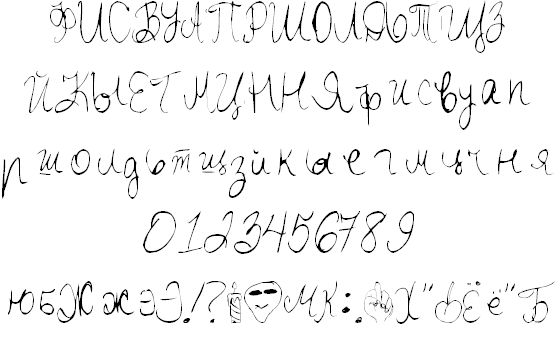 ФИСВУАПРШОЛДЬТЩЗ
ЙКЫЕГМЦЧНЯфисвуап
ршолдьтщзйкыегмцчня
0123456789
юБЖжэЭ!?МК:Х"ФЁё"Б